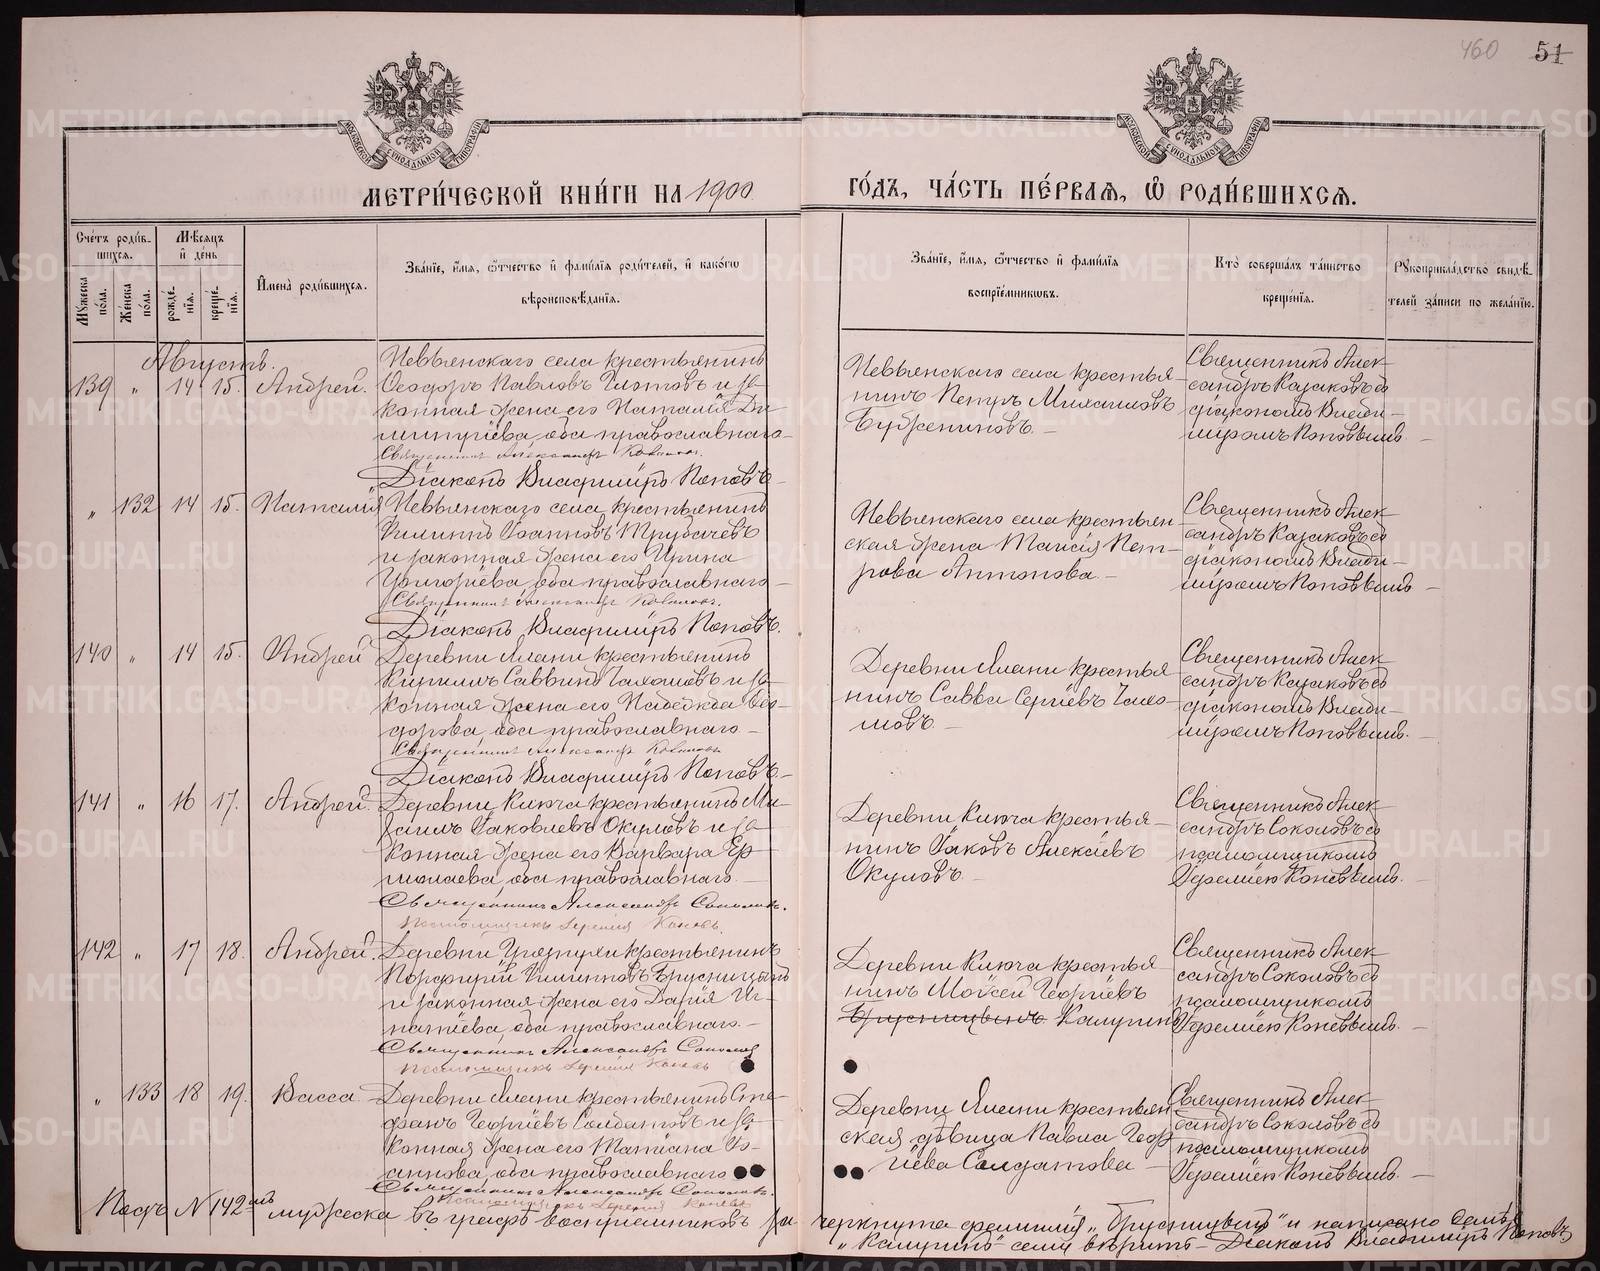 460 51
МЕТРИ́ЧЕСКОЙ КНИ́ГИ НА 1900 ГО́ДЪ, ЧА́СТЬ ПЕ́РВАѦ, Ѿ РОДИ́ВШИХСѦ.
МОСКОВСКОЙ СѴНОДАЛЬНОЙ ТИПОГРАФІИ
МОСКОВСКОЙ СѴНОДАЛЬНОЙ ТИПОГРАФІИ
Сче́тъ роди́в-
шихсѧ.
Мꙋжеска по́ла.
Же́нска по́ла.
Мѣ́сѧцъ
и҆ де́нь
рожде́нїѧ.
креще́нїѧ.
И҆мена̀ роди́вшихсѧ.
Зва́нїе, и҆́мѧ, ѻ҆́тчество и҆ фами́лїѧ роди́телей, и҆ како́гѡ
вѣроисповѣ́данїѧ.
Зва́нїе, и҆́мѧ, ѻ҆́тчество и҆ фами́лїѧ
воспрїе́мникѡвъ.
Кто̀ соверша́лъ та́инство
креще́нїѧ.
Рꙋкоприкла́дство свидѣ́-
телей за́писи по жела́нїю.
Августъ.
139 " 14 15. Андрей.
Невьянскаго села крестьянинъ
Ѳеодоръ Павловъ Глотовъ и за-
конная жена его Наталія Ди-
митріева, оба православнаго
Священникъ Александръ Казаковъ.
Діаконъ Владиміръ Поповъ
Невьянскаго села крестья-
нинъ Петръ Михаиловъ
Бубжениновъ. —
Священникъ Алек-
сандръ Казаковъ съ
діакономъ Влади-
міромъ Поповымъ —
" 132 14 15. Наталія
Невьянскаго села крестьянинъ
Филиппъ Іоанновъ Трубачевъ
и законная жена его Ирина
Григоріева, оба православнаго —
Священникъ Александръ Казаковъ.
Діаконъ Владиміръ Поповъ.
Невьянскаго села крестьян-
ская жена Таисія Пет-
рова Антонова. —
Священникъ Алек-
сандръ Казаковъ съ
діакономъ Влади-
міромъ Поповымъ —
140 " 14 15. Андрей
Деревни Ялани крестьянинъ
Кириллъ Саввинъ и за-
конная жена его Надежда Ѳео-
дорова, оба православнаго —
Священникъ Александръ Казаковъ
Діаконъ Владиміръ Поповъ —
Деревни Ялани крестья
нинъ Савва Сергіевъ
Священникъ Алек-
сандръ Казаковъ съ
діакономъ Влади-
міромъ Поповымъ. —
141 " 16 17. Андрей.
Деревни Ключа крестьянинъ Ми-
хаилъ Іаковлевъ Окуловъ и за-
конная жена его Варвара Ер-
молаева, оба православнаго. —
Священникъ Александръ Соколовъ.
Псаломщикъ Іеремія Коневъ.
Деревни Ключа крестья-
нинъ Іаковъ Алексіевъ
Окуловъ. —
Священникъ Алек-
сандръ Соколовъ съ
псаломщикомъ
Іереміею Коневымъ. —
142 " 17 18. Андрей.
Деревни крестьянинъ
Порфирій Филипповъ Брусницынъ
и законная жена его Дарія Иг-
натіева, оба православнаго. —
Священникъ Александръ Соколовъ
Псаломщикъ Іеремія Коневъ
Деревни Ключа крестья
нинъ Моѵсей Георгіевъ
Брусницынъ. Калугинъ
Священникъ Алек-
сандръ Соколовъ съ
псаломщикомъ
Іереміею Коневымъ. —
" 133 18 19. Васса
Деревни Ялани крестьянинъ Сте-
фанъ Георгіевъ Солдатовъ и за-
конная жена его Татіана Іо-
аннова, оба православнаго
Священникъ Александръ Соколовъ.
Псаломщикъ Іеремія Коневъ
Деревни Ялани крестьян
ская дѣвица Павла Геор
гіева Солдатова —
Священникъ Алек-
сандръ Соколовъ съ
псаломщикомъ
Іереміею Коневымъ. —
Подъ № 142мъ мужеска въ графѣ воспріемниковъ зачеркнута фамилія "Брусницынъ" и написано
"Калугинъ" сему вѣрить — Діаконъ Владиміръ Поповъ
METRIKI.GASO-URAL.RU